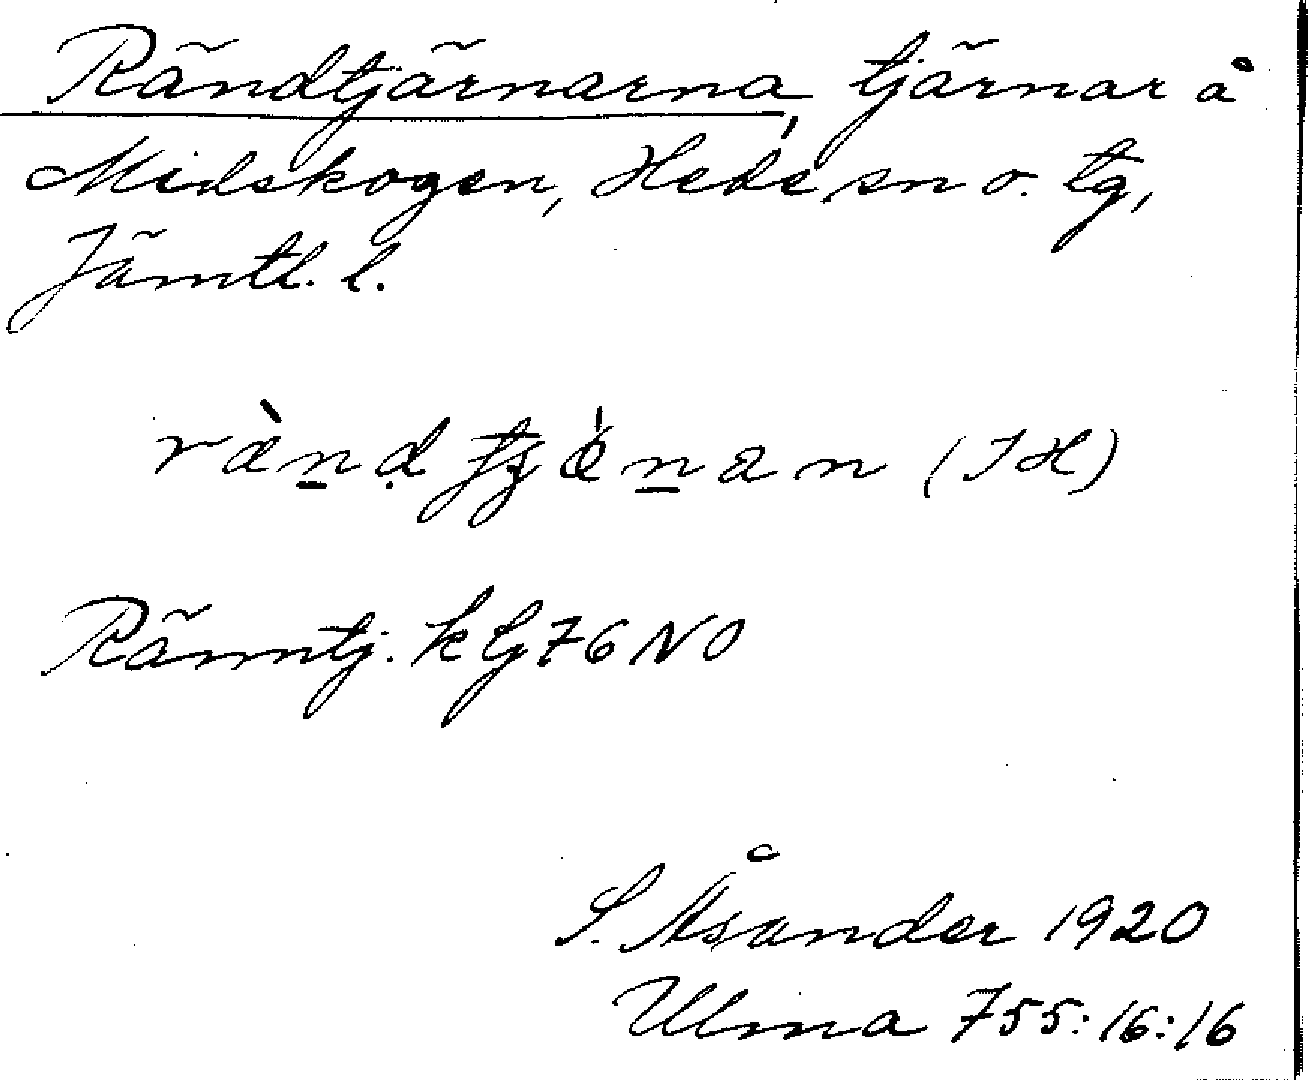 Rändtjärnarna, tjärnar å
Midskogen, Hede sn o. tg,
Jämtl. l.
(JH)
Ränntj. k Lj 76 NO
S. Åsander 1920
Ulma 755:16:16